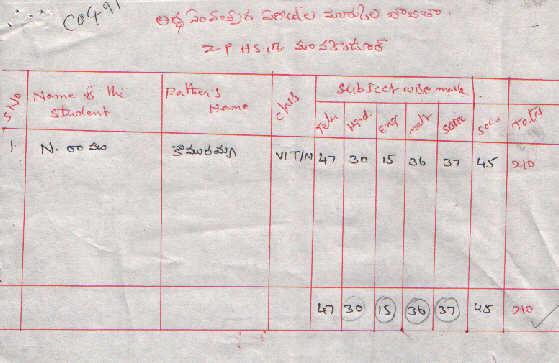 C0491
అర్థ సంవత్సర పరీక్షల మార్కుల జాబితా
Z-P H S
S.No Name of the Student Father's Name Class Subject wise mark
Telu Hind. Eng math Scene Soci Total
1. N. రాము VI T/M 47 30 15 36 37 45 210
47 30 15 36 37 45 210